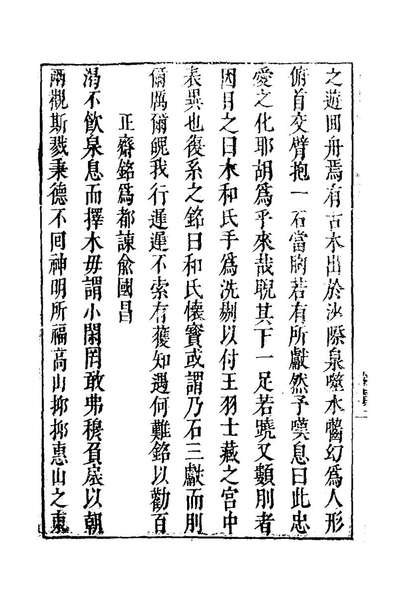 之遊回舟焉有古木出於沙際泉囓水齧幻爲人形
俯首交臂抱一石當胸若有所獻然予嘆息曰此忠
愛之化耶胡爲乎來哉睨其下一足若蹺又類刖者
因目之曰木和氏手爲洗剔以付王羽士藏之宫中
表異也復系之銘曰和氏懷寳或謂乃石三獻而刖
爾厲爾蜺我行遲遲不索有獲知遇何難銘以勸百
正齋銘爲都諫俞國昌
渴不飲泉息而擇木毋謂小閑罔敢弗穆負扆以朝
兩觀斯戮秉德不回神明所福高山抑抑惠山之東